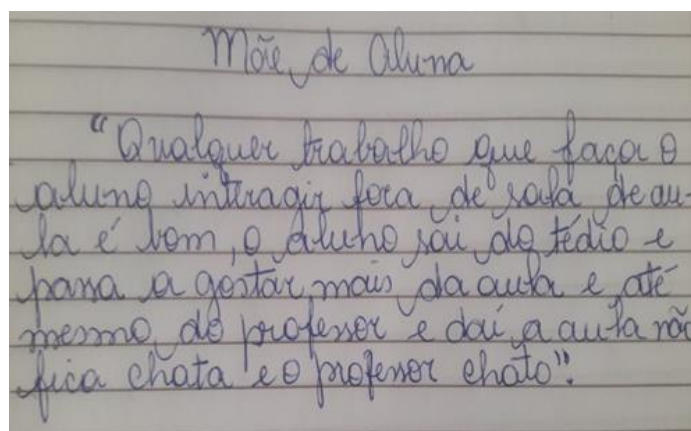 Mãe de Aluna
“Qualquer trabalho que faça o
aluno interagir fora de sala de au-
la é bom, o aluno sai do tédio e
passa a gostar mais da aula e até
mesmo do professor e daí a aula não
fica chata e o professor chato”.